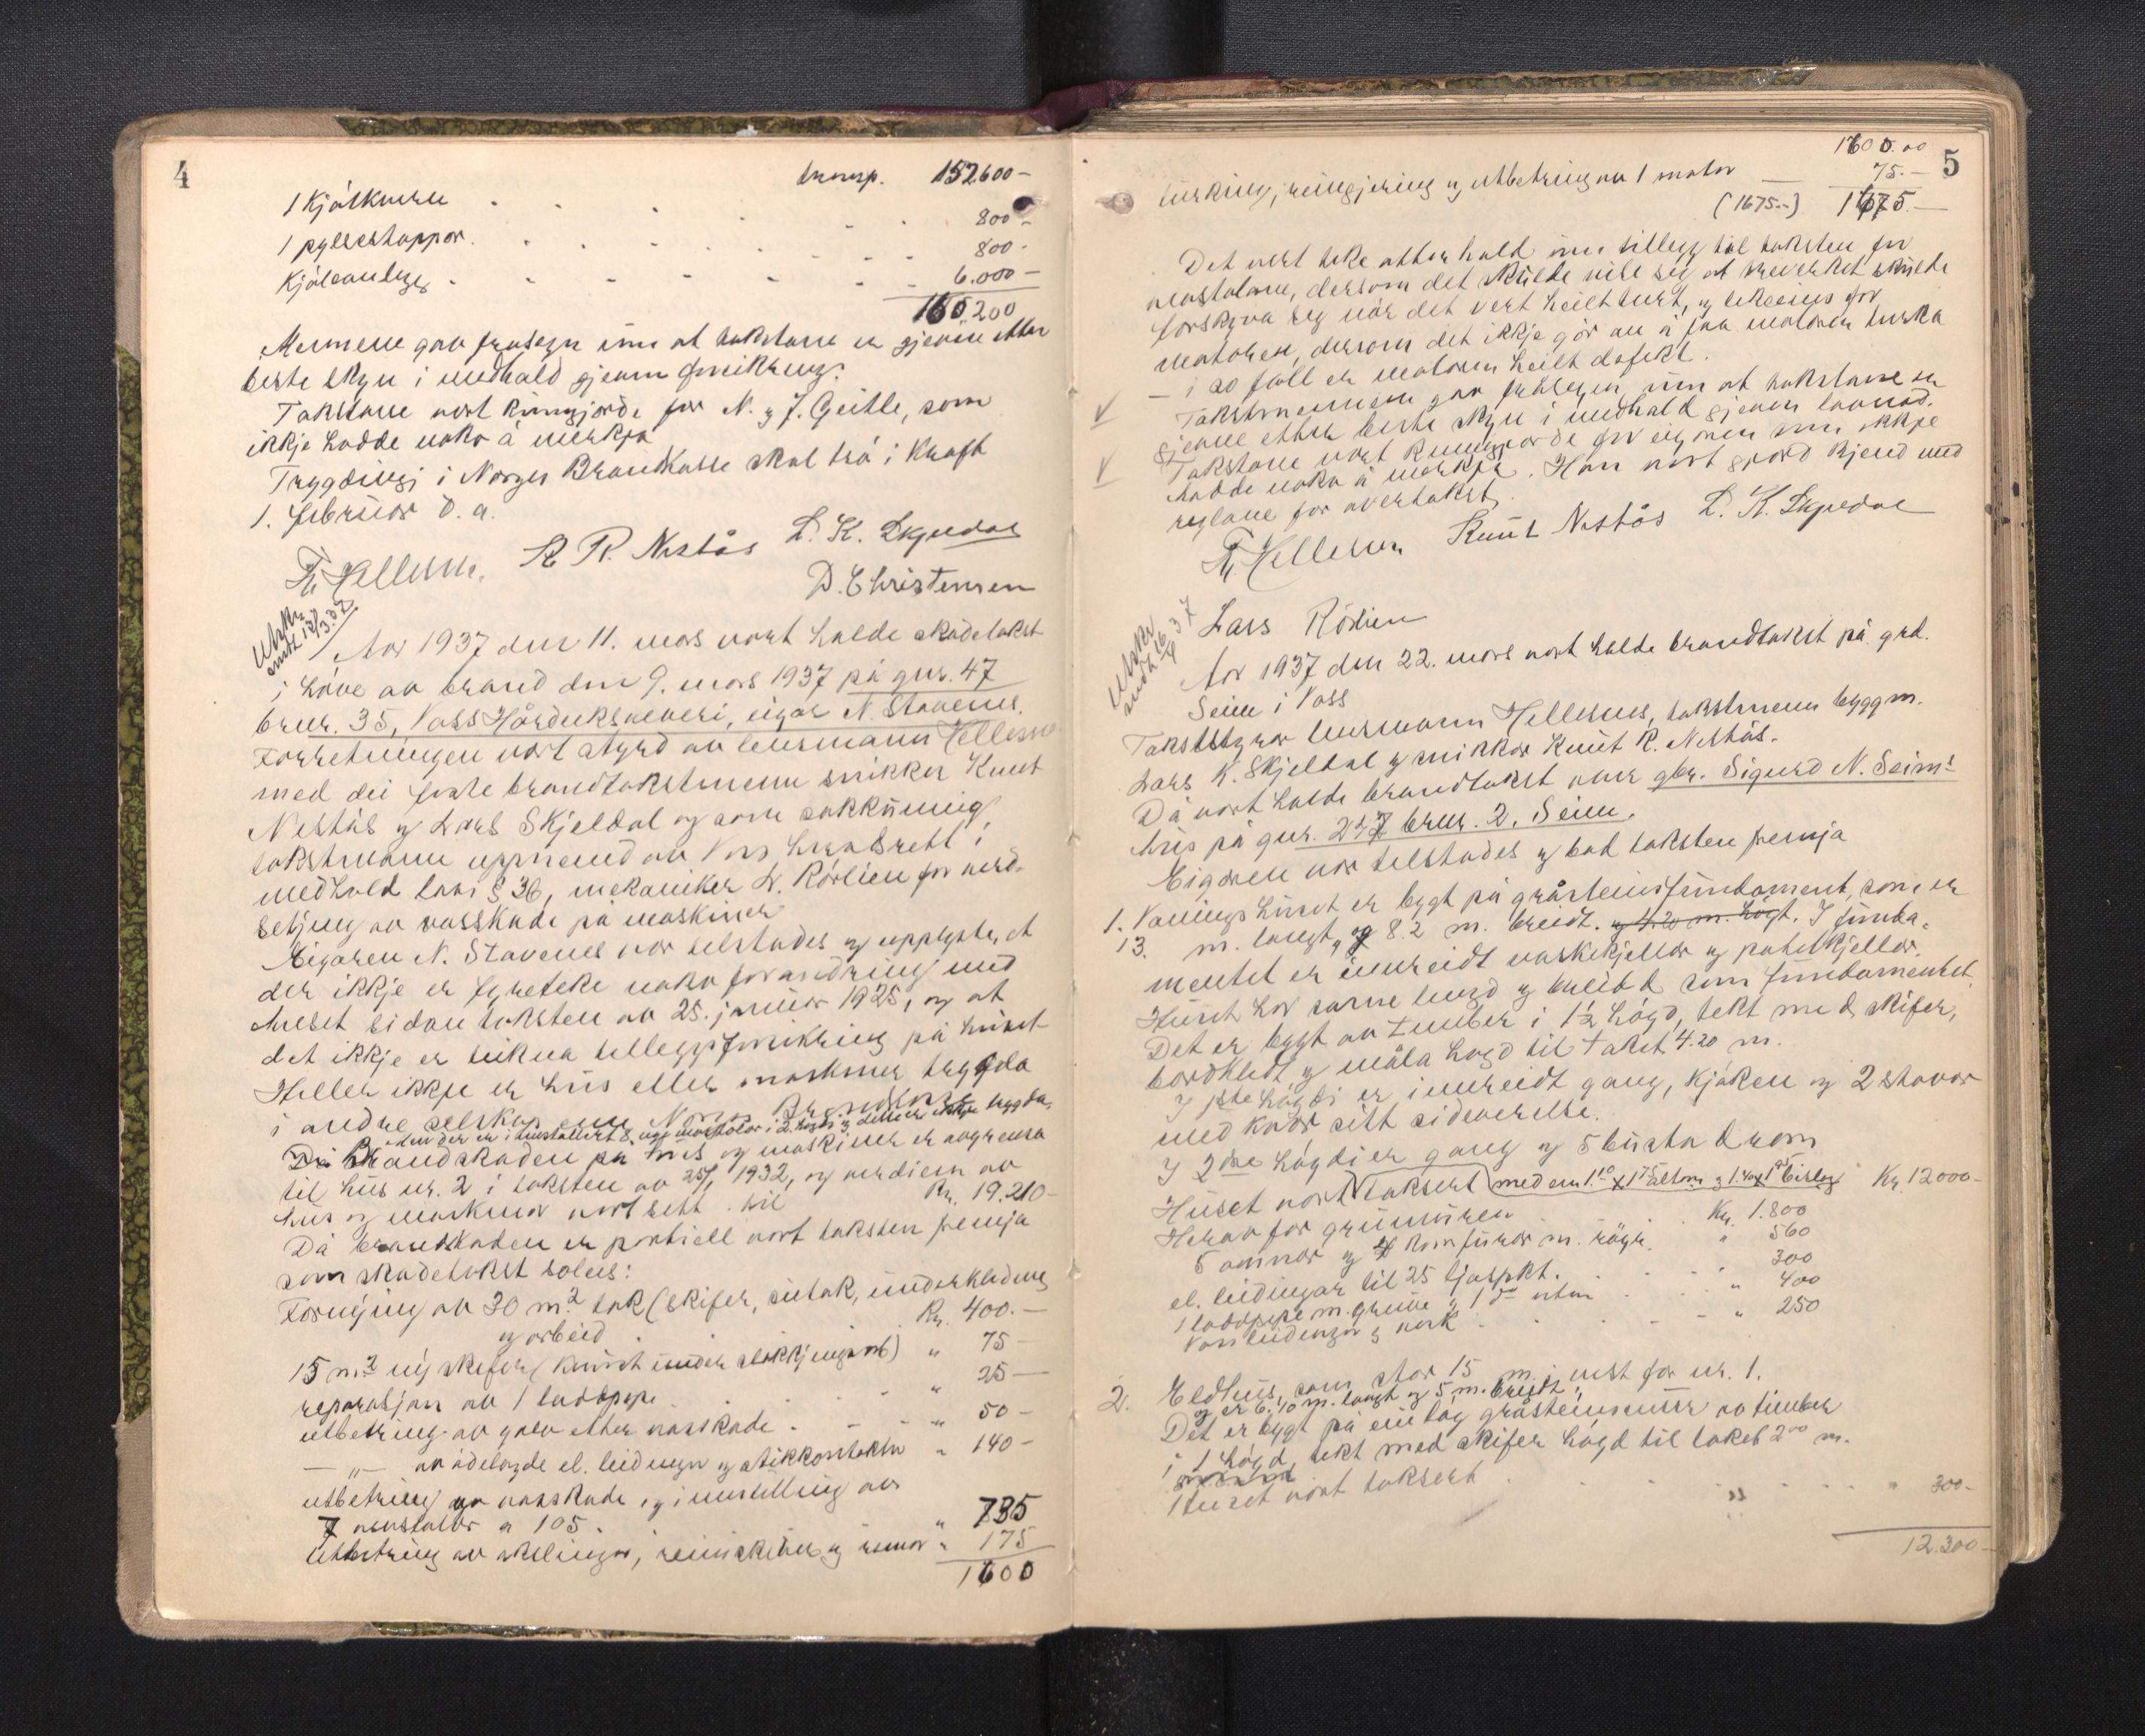 4
transp. 152600 —
1 Kjøtkvern 800 -
1 pylsestappar 800 -
Kjøleanlegg 6.000 —
160.200
Mennene gav fråsegn um at takstane er gjevne etter
beste skyn i medhald gjeven forsikring.
Takstane vart kunngjorde for N. og J. Geitle, som
ikkje hadde noko å merkja
Trygdingi i Norges Brandkasse skal trå i kraft
1. februar d. a.
K. R. Nestås L. K. Skjeldal
D. Christensen
Utskr.
sendt 12/3.37
Aar 1937 den 11. mars vart halde skadetakst
i høve av brand den 9. mars 1937 på gnr. 47
brnr. 35, Voss Hårduksveveri, eigar N. Stavenes.
Forretningen vart styrd av lensmann Hellesnes
med dei faste brandtakstmenn snikker Knut
Nestås og Lars Skjeldal og som sakkunnig
takstmann uppnemd av Voss heradsrett i
medhald lovi § 36, mekaniker L. Rørlien for verd-
setjing av vasskade på maskiner
Eigaren N. Stavenes var tilstades og upplyste, at
der ikkje er fyreteke noko forandring med
huset sidan taksten av 25. januar 1925, og at
det ikkje er teikna tilleggsforsikring på huset
Heller ikkje er hus eller maskiner trygda
i andre selskap enn Norges Brandkasse
men der er innstallert 8 nye vevstolar i 2. høgd og desse er ikkje trygda.
Då Brandskaden på hus og maskiner er avgrensa
til hus nr. 2 i taksten av 25/1 1932, og verdien av
hus og maskiner vart sett til Kr. 19.210-
Då brandskaden er partiell vart taksten fremja
som skadetakst soleis:
Fornying av 30 m.² tak (skifer, sutak, underkledning
og arbeid Kr. 400.—
15 m.² ny skifer (knust under sløkkjingsarb) " 75 —
reparasjon av 1 ladepipe " 25 —
utbetring av golv etter vasskade " 50 —
— " — av ødelagde el. leidningar og stikkontakter " 140 -
utbetring av vasskade, og innstilling av
7 vevstolar a 105. " 735
Utbetring av akslingar, reimskiver og reimar " 175
1600
5
1600.00
turking, reingjering og utbetring av 1 motor — 75.—
(1675.-) 1675.—
Det vert teke atterhald um tillegg til taksten for
vevstolane, dersom det skulde vise seg at treverket skulde
forskyva seg når det vert heilt turt, og likeeins for
motoren, dersom det ikkje gjør an å faa motoren turka
— i so fall er motoren heilt defekt.
Takstmennene gav fråsegn um at takstane er
gjevne etter beste skyn i medhald gjeven lovnad.
Takstane vart kunngjorde for eigaren som ikkje
hadde noko å merkja. Han vart gjord kjend med
reglane for overtakst.
Hellesnes Knut Nestås L. K. Skjeldal
Lars Rörlien
Utskr
sendt 26 37
4
Aar 1937 den 22. mars vart halde brandtakst på grd.
Seim i Voss
Takststyrar lensmann Hellesnes, takstmenn byggm.
Lars K. Skjeldal og snikkar Knut R. Nestås.
Då vart halde brandtakst over gbr. Sigurd N. Seims
hus på gnr. 247 brnr. 2, Seim.
Eigaren var tilstades og bad taksten fremja
1. Vaaningshuset er bygt på gråsteinsfundament, som er
13. m. langt, og 8.2 m. breidt. og 4.20 m. høgt. I funda-
mentet er innreidt vaskekjellar og potetkjellar.
Huset har same lengd og breidd som fundamentet.
Det er bygt av tømber i 1½ høgd, tekt med skifer,
bordkledt og måla høgd til taket 4.20 m.
I 1ste høgdi er innreidt gang, kjøken og 2 stovor
med kvar sitt sideverelse.
I 2dre høgdi er gang og 5 bustadrom
Huset vart taksert med em 1.10 x 1.75 altan og 1.40 x 1.25 bislag Kr. 12000-
Herav for grunnmuren Kr. 1.800
5 omnar og komfurar m. røyr. " 560
el. leidingar til 25 ljospkt. " 300
1 ladepipe m. greine og 1 do uten " 400
Vassleidingar og vask " 250
2. Eldhus, som star 15 m. vest for nr. 1.
og er 6.40 m. langt og 5 m. breidt,
Det er bygt på ein låg gråsteinsmur av timber
i 1 høgd, tekt med skifer høgd til taket 2.00 m.
Huset vart taksert " 300-
12.300-